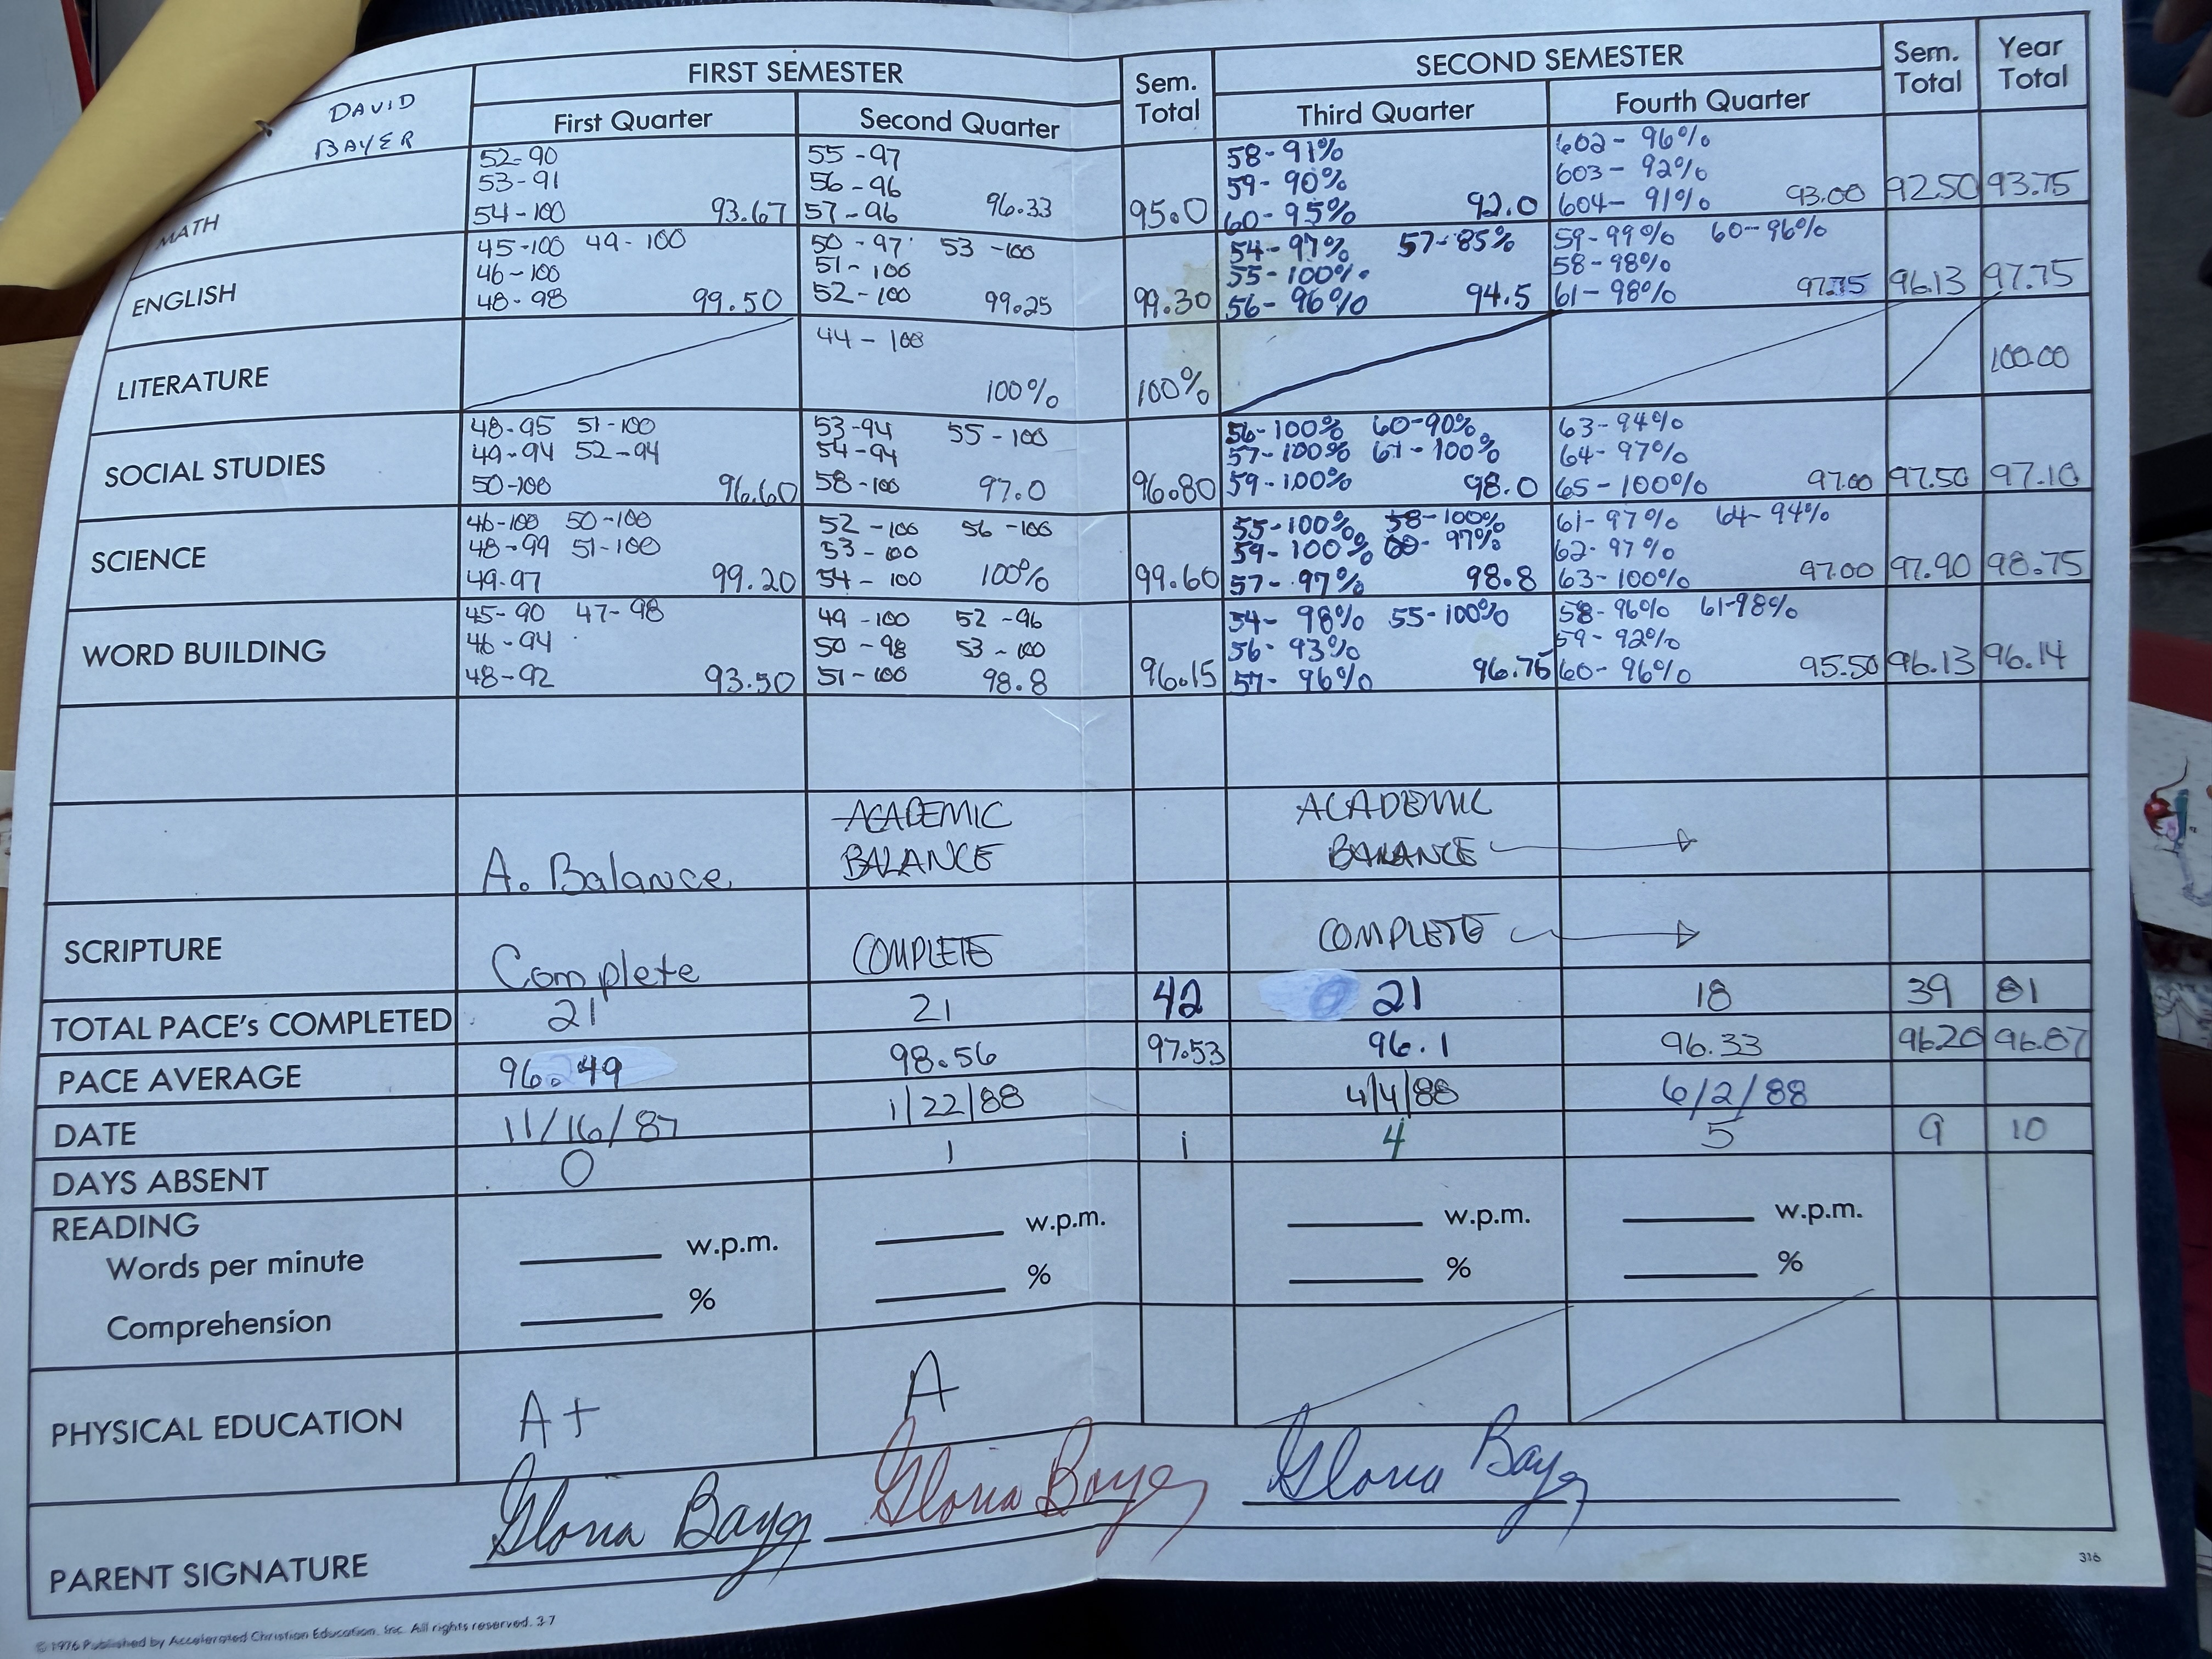 DAVID
BAYER
FIRST SEMESTER
Sem.
Total
SECOND SEMESTER
Sem.
Total
Year
Total
First Quarter
Second Quarter
Third Quarter
Fourth Quarter
MATH
52-90
53-91
54-100 93.67
55-97
56-96
57-96 96.33
95.0
58-91%
59-90%
60-95% 92.0
602-96%
603-92%
604-91% 93.00
92.50
93.75
ENGLISH
45-100 49-100
46-100
48-98 99.50
50-97 53-100
51-100
52-100 99.25
99.30
54-97% 57-85%
55-100%
56-96% 94.5
59-99% 60-96%
58-98%
61-98% 97.75
96.13
97.75
LITERATURE
44-100
100%
100%
100.00
SOCIAL STUDIES
48-95 51-100
49-94 52-94
50-100 96.60
53-94 55-100
54-94
58-100 97.0
96.80
56-100% 60-90%
57-100% 61-100%
59-100% 98.0
63-94%
64-97%
65-100% 97.00
97.50
97.10
SCIENCE
46-100 50-100
48-99 51-100
49-97 99.20
52-100 56-100
53-100
54-100 100%
99.60
55-100% 58-100%
59-100% 60-97%
57-97% 98.8
61-97% 64-94%
62-97%
63-100% 97.00
97.90
98.75
WORD BUILDING
45-90 47-98
46-94
48-92 93.50
49-100 52-96
50-98 53-100
51-100 98.8
96.15
54-98% 55-100%
56-93%
57-96% 96.75
58-96% 61-98%
59-92%
60-96% 95.50
96.13
96.14
A. Balance
ACADEMIC
BALANCE
ACADEMIC
BALANCE
SCRIPTURE
Complete
COMPLETE
COMPLETE
TOTAL PACE's COMPLETED 21 21 42 21 18 39 81
PACE AVERAGE 96.49 98.56 97.53 96.1 96.33 96.20 96.87
DATE 11/16/87 1/22/88 4/4/88 6/2/88
DAYS ABSENT 0 1 1 4 5 9 10
READING
Words per minute w.p.m. w.p.m. w.p.m. w.p.m.
Comprehension % % % %
PHYSICAL EDUCATION A+ A
PARENT SIGNATURE Gloria Bayer Gloria Bayer Gloria Bayer
316
© 1976 Published by Accelerated Christian Education, Inc. All rights reserved. 3-7